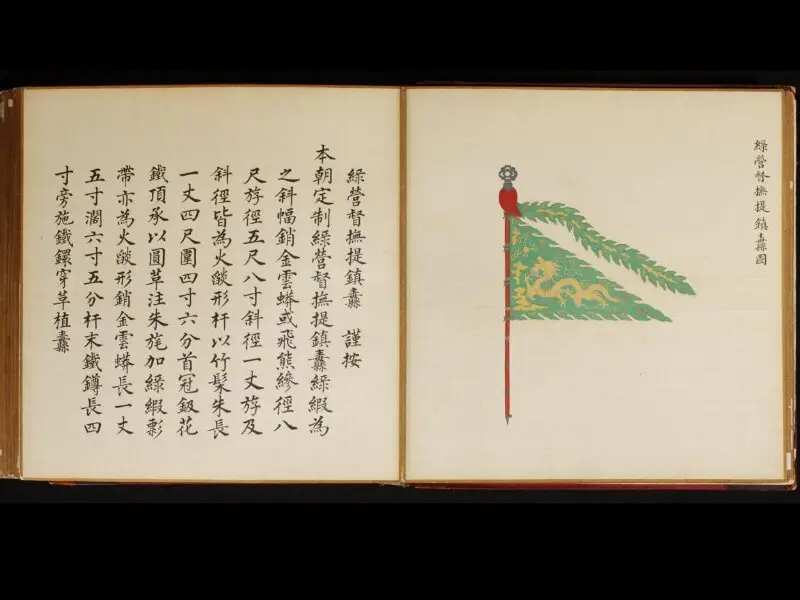 綠營督撫提鎮纛圖
綠營督撫提鎮纛 謹按
本朝定制綠營督撫提鎮纛綠緞為
之斜幅銷金雲蟒或飛熊縿徑八
尺斿徑五尺八寸斜徑一丈斿及
斜徑皆為火燄形杆以竹髹朱長
一丈四尺圍四寸六分首冠鈒花
鐵頂承以圓草注朱旄加綠緞彯
帶亦為火燄形銷金雲蟒長一丈
五寸濶六寸五分杆末鐵鐏長四
寸旁施鐵鐶穿草植纛